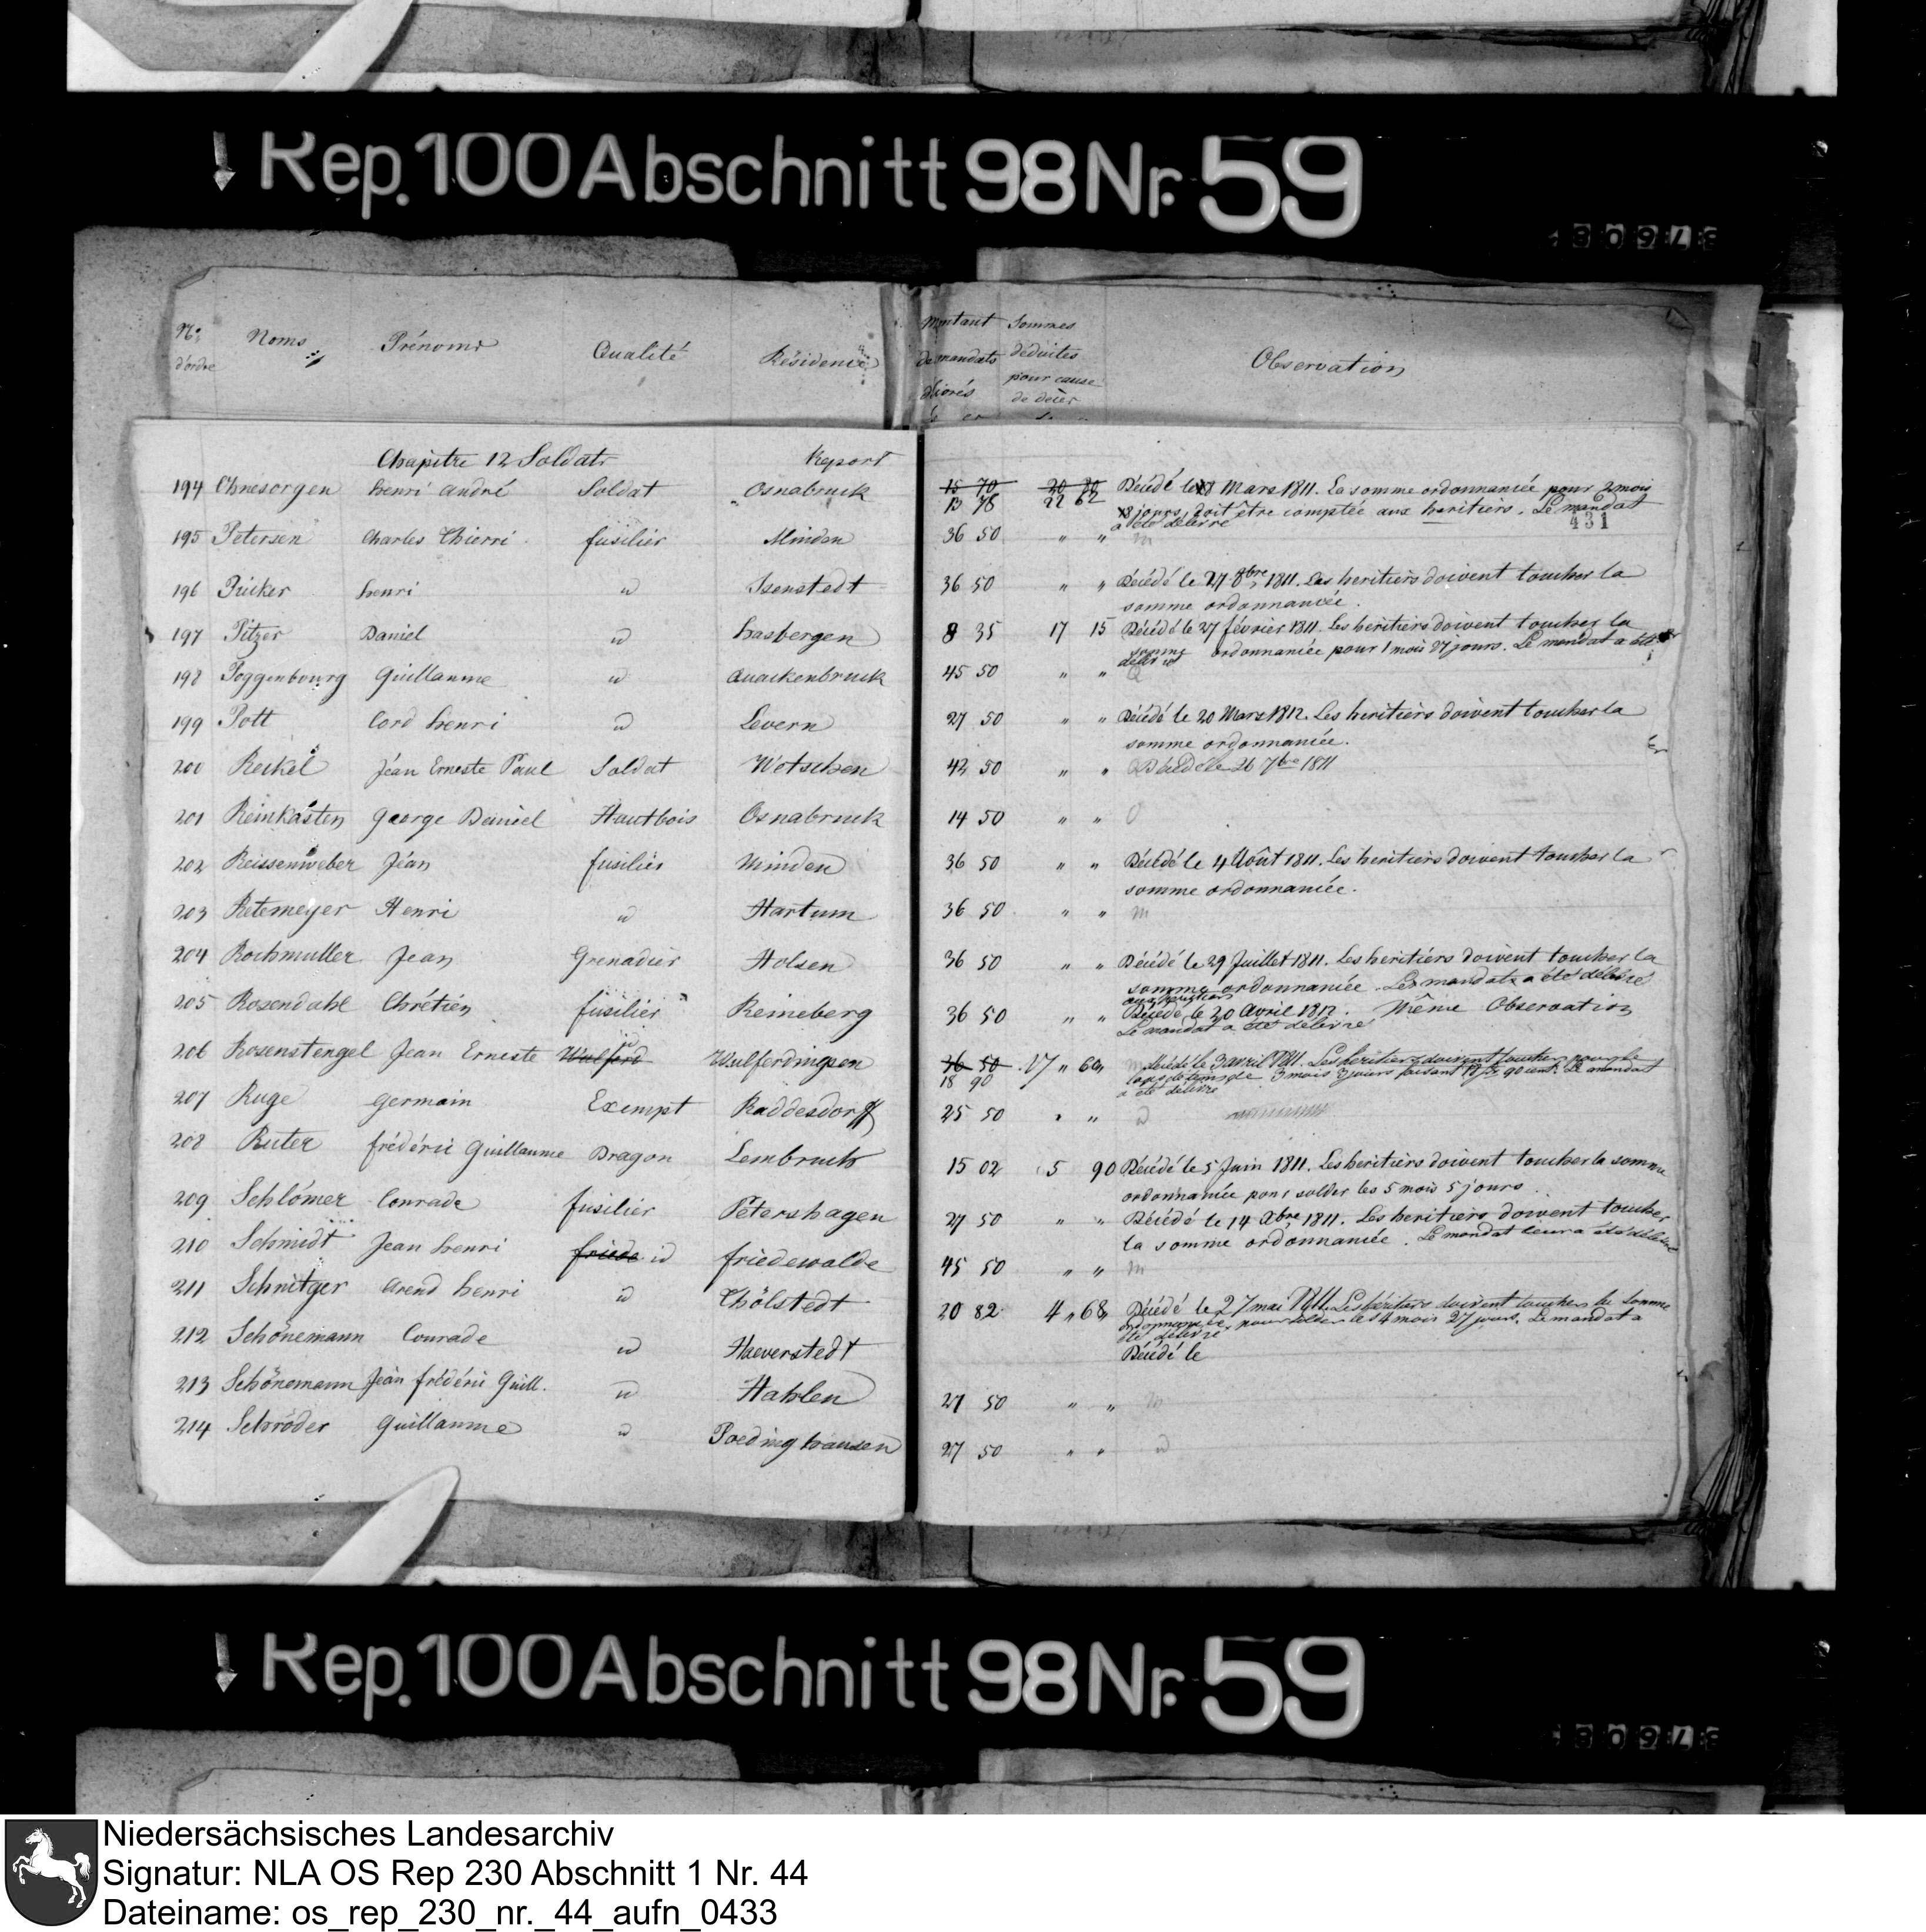 Rep. 100 Abschnitt 98 Nr. 59
N.º d'ordre Noms Prénoms Qualité Résidence Montant de mandats délivrés Sommes déduites pour cause de décès Observation
Chapitre 12 Soldats Report
194 Ohnesorgen henri andré Soldat Osnabruck 15 70 20 80 Décédé le 8 Mars 1811. La somme ordonnancée pour 2 mois
13 78 22 62 8 jours, doit être comptée aux heritiers. Le mandat
a été délivré
431
195 Petersen Charles Thierri fusilier Minden 36 50 " "
196 Pücker henri id Isenstedt 36 50 " " Décédé le 27 8bre 1811. Les heritiers doivent toucher la
somme ordonnancée.
197 Pitzer Daniel id hasbergen 8 35 17 15 Décédé le 27 février 1811. Les heritiers doivent toucher la
somme ordonnancée pour 1 mois 27 jours. Le mandat a été
délivré
198 Poggenbourg Guillaume id Quackenbruck 45 50 " "
199 Pott Cord henri id Levern 27 50 " " Décédé le 20 Mars 1812. Les heritiers doivent toucher la
somme ordonnancée.
200 Reckel Jéan Erneste Paul Soldat Wetschen 42 50 " " Décédé le 26 7bre 1811
201 Reinkasten George Daniel Hautbois Osnabruck 14 50 " "
202 Reissenweber Jéan fusilier Minden 36 50 " " Décédé le 4 Août 1811. Les heritiers doivent toucher la
somme ordonnancée.
203 Retemeyer Henri id Hartum 36 50 " "
204 Rochmuller Jean Grenadier Holsen 36 50 " " Décédé le 29 Juillet 1811. Les heritiers doivent toucher la
somme ordonnancée. Le mandat a été délivré
aux heritiers
205 Rosendahl Chrétien fusilier Reineberg 36 50 " " Décédé le 20 Avril 1812. Même Observation
Le mandat a été délivré
206 Rosenstengel Jean Erneste Wulferd id Wulferdingsen 36 50 17 " 60 Décédé le 3 avril 1811. Les heritiers doivent toucher pour le
18 90 3 mois 3 jours faisant 18 90 cent. Le mandat
a été délivré
207 Ruge germain Exempt Raddesdorff 25 50 " "
208 Ruter frédéric Guillaume Dragon Lembruch 15 02 5 90 Décédé le 5 Juin 1811. Les heritiers doivent toucher la somme
ordonnancée pour solder les 5 mois 5 jours.
209 Schlömer Conrade fusilier Petershagen 27 50 " " Décédé le 14 Xbre 1811. Les heritiers doivent toucher
la somme ordonnancée. Le mandat leur a été délivré
210 Schmidt Jean henri friede id friedewalde 45 50 " "
211 Schnitger Arend henri id Thölstedt 20 82 4 " 68 Décédé le 27 mai 1811. Les héritiers doivent toucher la somme
ordonnancée pour solder les 4 mois 27 jours. Le mandat a
été délivré
212 Schönemann Conrade id Haeverstedt Décédé le
213 Schönemann Jéan frédéric Guill. id Hahlen 27 50 " "
214 Schröder Guillaume id Poedinghausen 27 50 " "
Rep. 100 Abschnitt 98 Nr. 59
Niedersächsisches Landesarchiv
Signatur: NLA OS Rep 230 Abschnitt 1 Nr. 44
Dateiname: os_rep_230_nr._44_aufn_0433